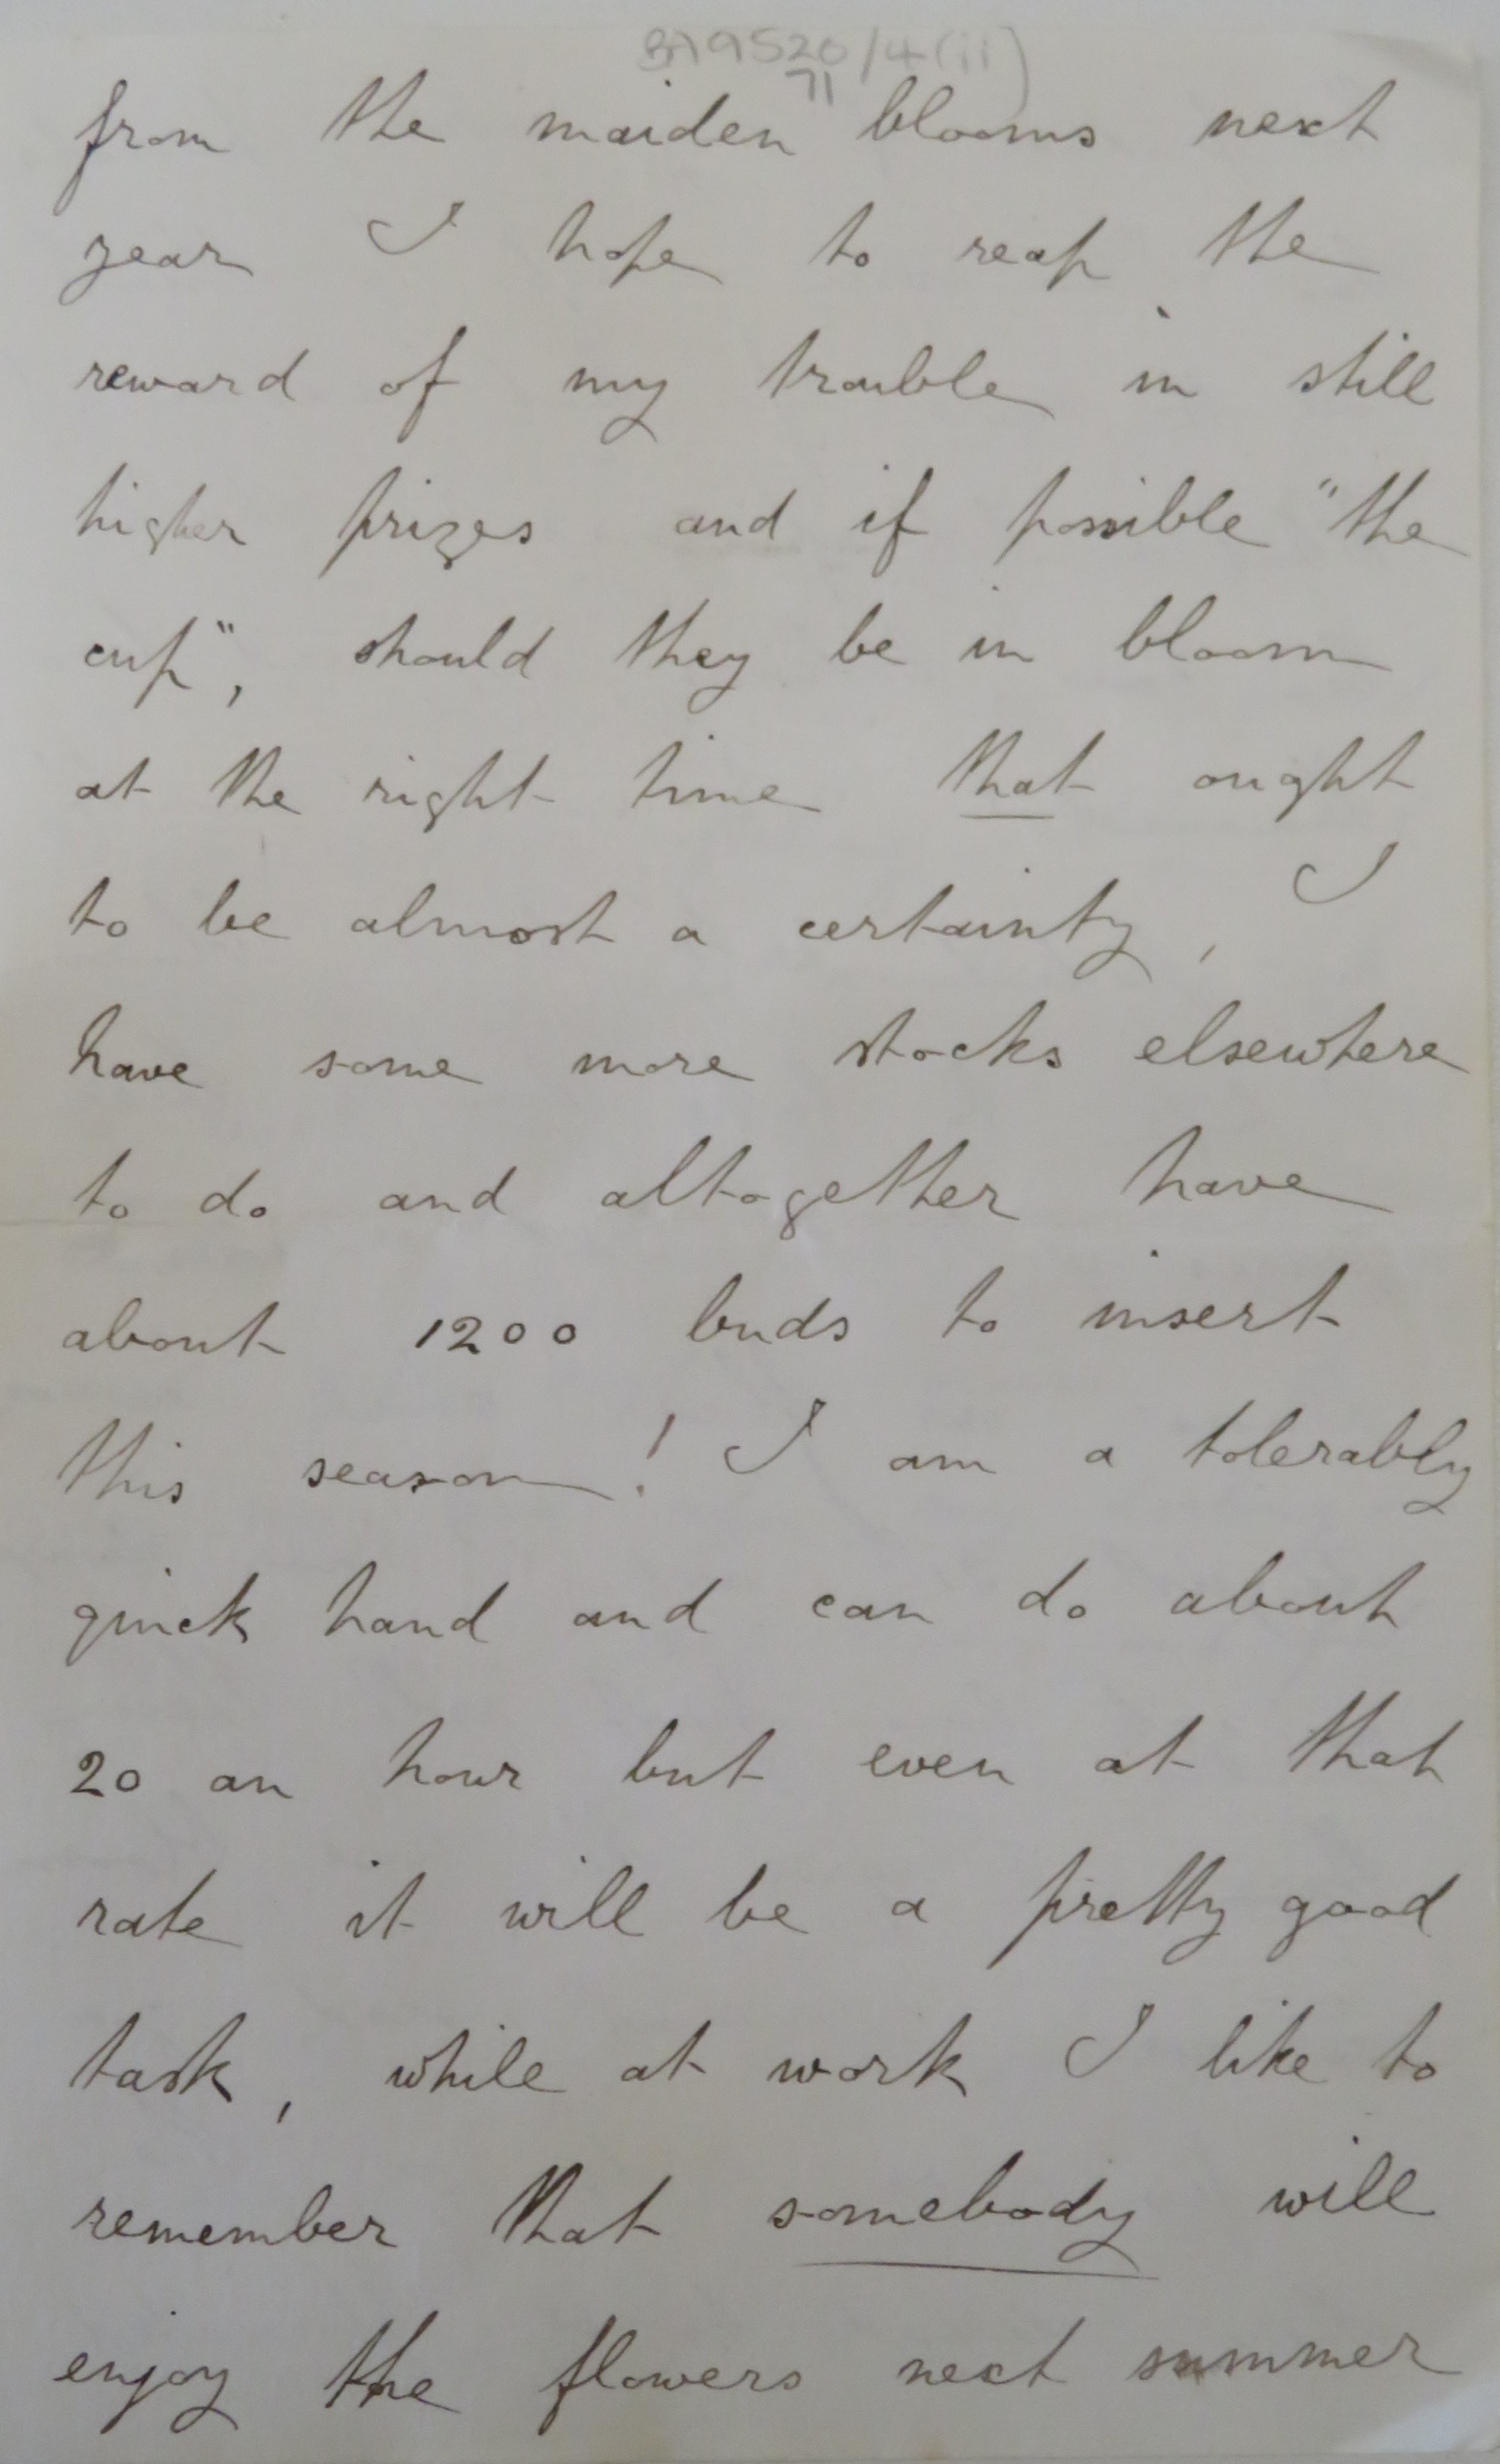 BA9520/4(ii)
71
from the maiden blooms next
year I hope to reap the
reward of my trouble in still
higher prizes and if possible "the
cup", should they be in bloom
at the right time that ought
to be almost a certainty, I
have some more stocks elsewhere
to do and altogether have
about 1200 buds to insert
this season! I am a tolerably
quick hand and can do about
20 an hour but even at that
rate it will be a pretty good
task, while at work I like to
remember that somebody will
enjoy the flowers next summer